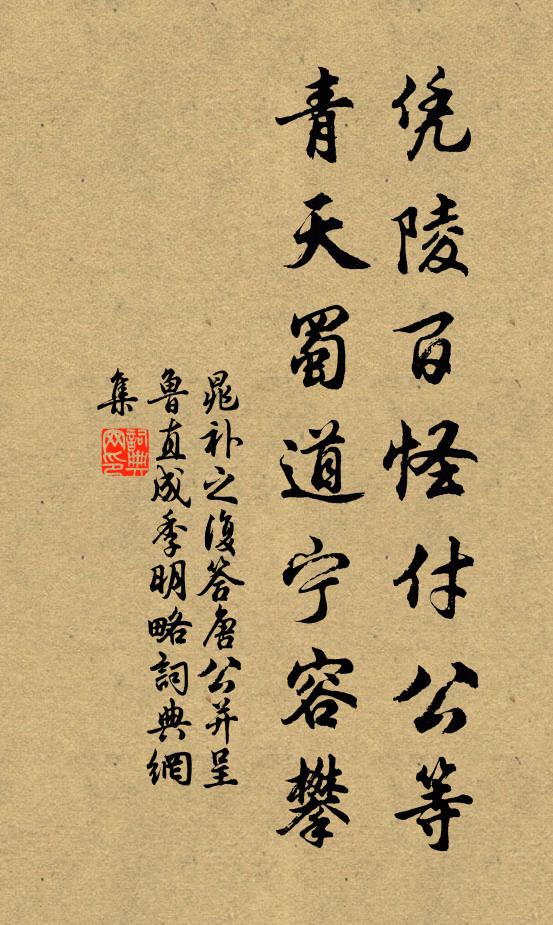 凭陵百怪付公等
青天蜀道宁容攀
晁补之復答唐公并呈
鲁直成季明略詞典網
集
詞典
网印